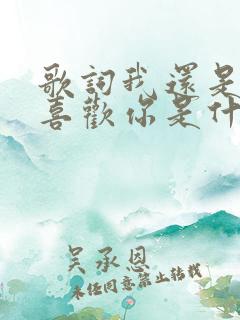 歌詞我還是
喜歡你是什
吳承恩
未經同意禁止轉載